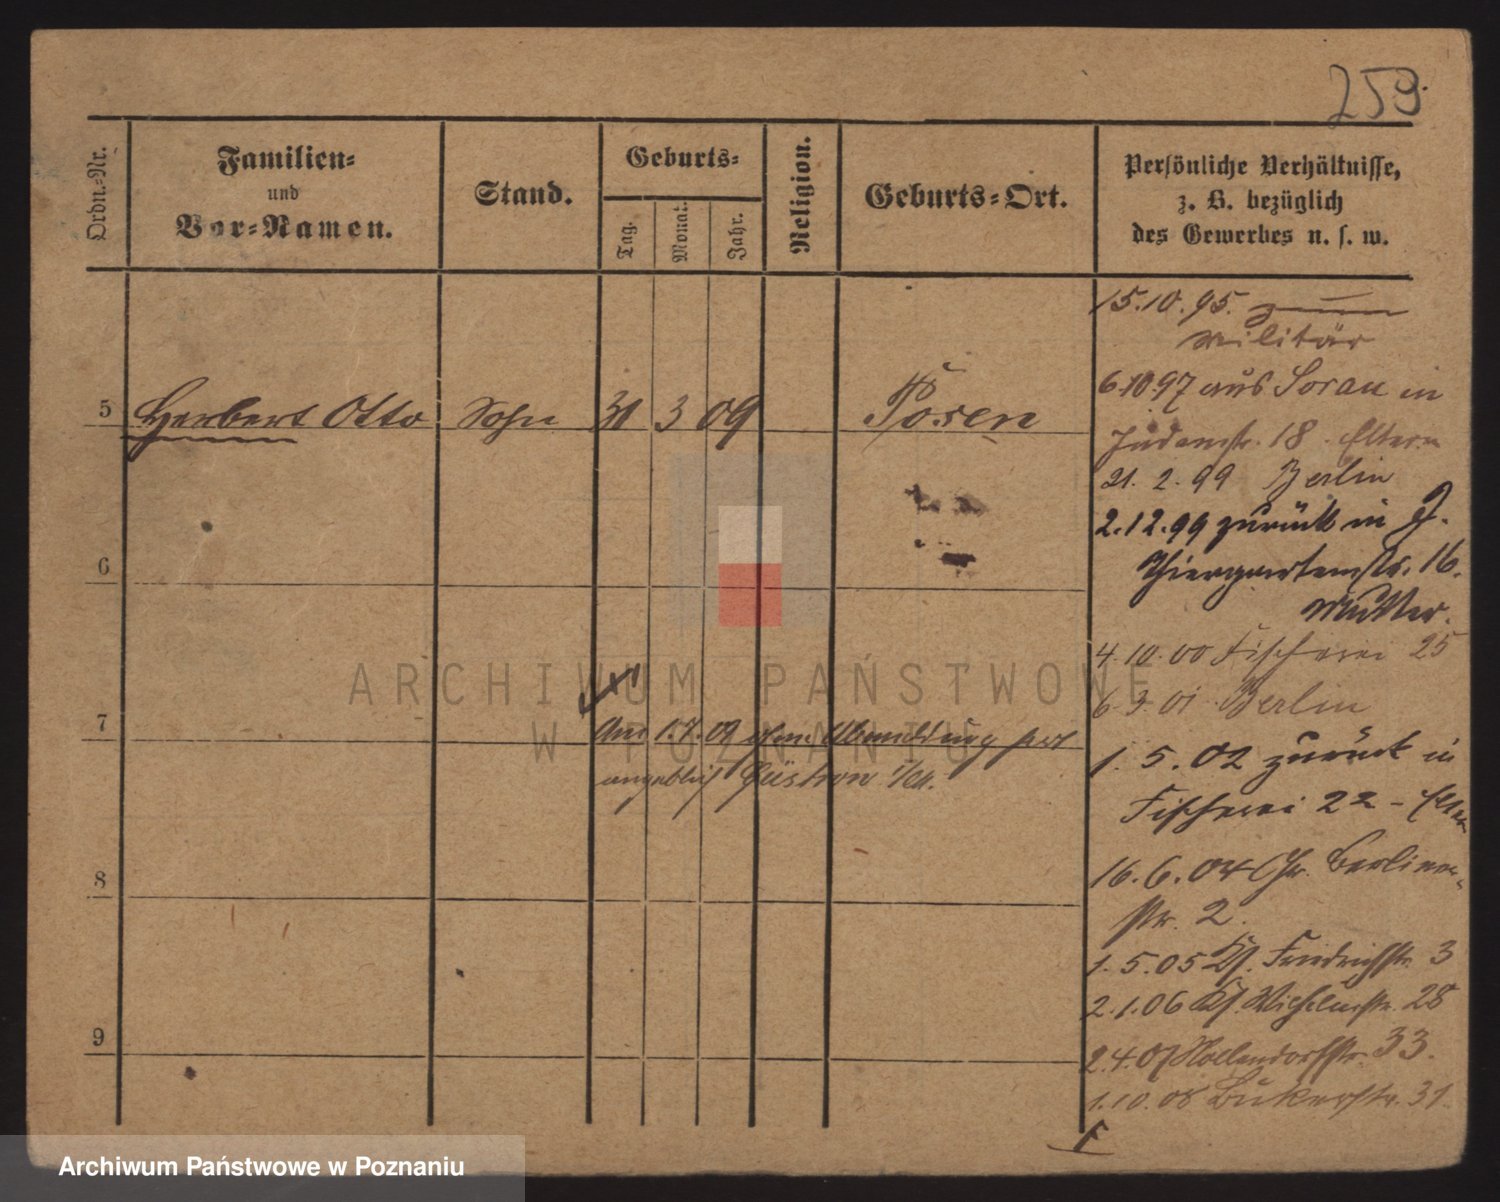 259.
Ordn.-Nr.
Familien-
und
Vor-Namen.
Stand.
Geburts-
Tag.
Monat.
Jahr.
Religion.
Geburts-Ort.
Persönliche Verhältnisse,
z. B. bezüglich
des Gewerbes u. s. w.
15.10.95. zum
Militär
6.10.97 aus Sorau in
Judenstr. 18. Eltern
21. 2. 99 Berlin
2.12.99 zurück in
Thiergartenstr. 16.
Mutter.
4.10.00 Fischerei 25
6 3 01 Berlin
1. 5. 02 zurück in
Fischerei 22 - Eltern
16. 6. 04 Gr. Berliner-
str. 2.
1. 5. 05 Ks. Friedrichstr. 3
2. 1. 06 Ks. Wilhelmstr. 28
2.4.07 Nollendorfstr. 33.
1.10.08 Bukerstr. 31.
5 Herbert Otto Sohn 31 3 09 Posen
6
7
Am 1.7.09 ohne Abmeldung fort
angeblich Güstrow
8
9
ARCHIWUM PAŃSTWOWE
W POZNANIU
Archiwum Państwowe w Poznaniu